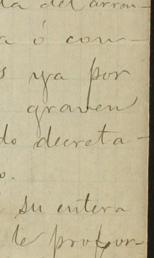 ta del arren-
a ó con-
s ya por
graven
do decreta-
o.
su entera
le profor-